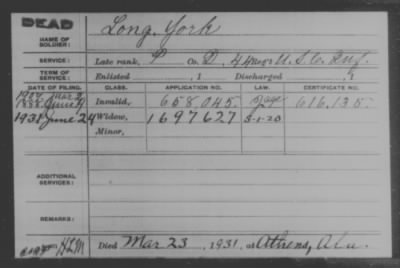 DEAD
NAME OF SOLDIER: Long, York
SERVICE: Late rank, P Co. D, 44 Reg't U.S.C. Inf.
TERM OF SERVICE: Enlisted , 1 Discharged , 1
DATE OF FILING. CLASS. APPLICATION NO. LAW. CERTIFICATE NO.
Invalid, 658.045. 616.135.
1931 June 24 Widow, 1697627 5-1-20
Minor,
ADDITIONAL SERVICES:
REMARKS:
Died Mar 23, 1931, at Athens, Ala.